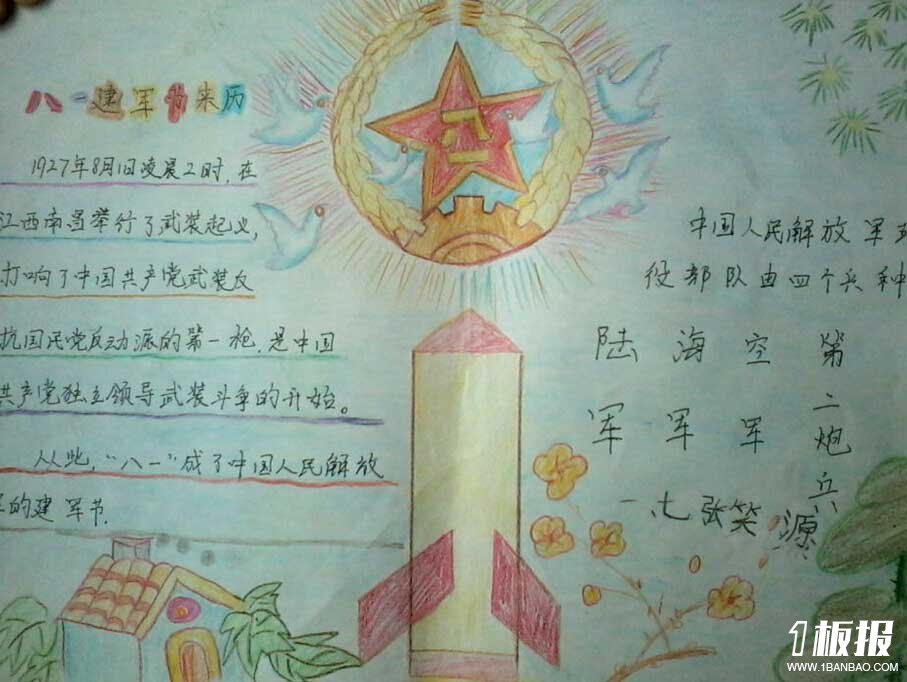 八一建军节来历
1927年8月1日凌晨2时，在
江西南昌举行了武装起义，
打响了中国共产党武装反
抗国民党反动派的第一枪，是中国
共产党独立领导武装斗争的开始。
从此，“八一”成了中国人民解放
的建军节.
中国人民解放军现
役部队由四个兵种
陆军
海军
空军
第二炮兵
一、七 张笑源
1板报
WWW.1BANBAO.COM